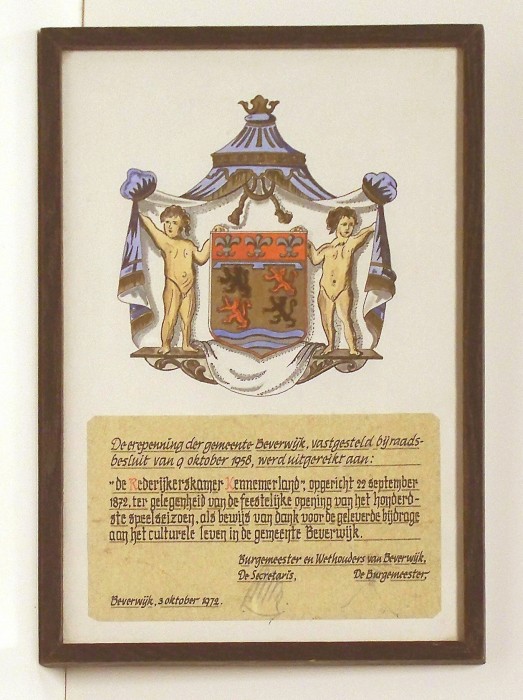 De erepenning der gemeente Beverwijk, vastgesteld bij raads-
besluit van 9 oktober 1958, werd uitgereikt aan:
"de Rederijkerskamer Kennemerland", opgericht 22 september
1872, ter gelegenheid van de feestelijke opening van het honderd-
ste speelseizoen, als bewijs van dank voor de geleverde bijdrage
aan het culturele leven in de gemeente Beverwijk.
Burgemeester en Wethouders van Beverwijk,
De Secretaris, De Burgemeester,
Beverwijk, 3 oktober 1972.